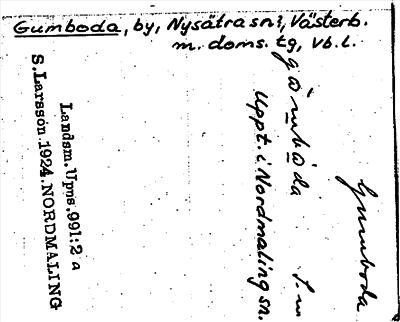 Gumboda, by, Nysätra sn, Västerb.
m. doms. tg, Vb. l.
Gumboda
Uppt. i Nordmaling sn.
Landsm. Upps. 991:2 a
S. Larsson 1924. NORDMALING